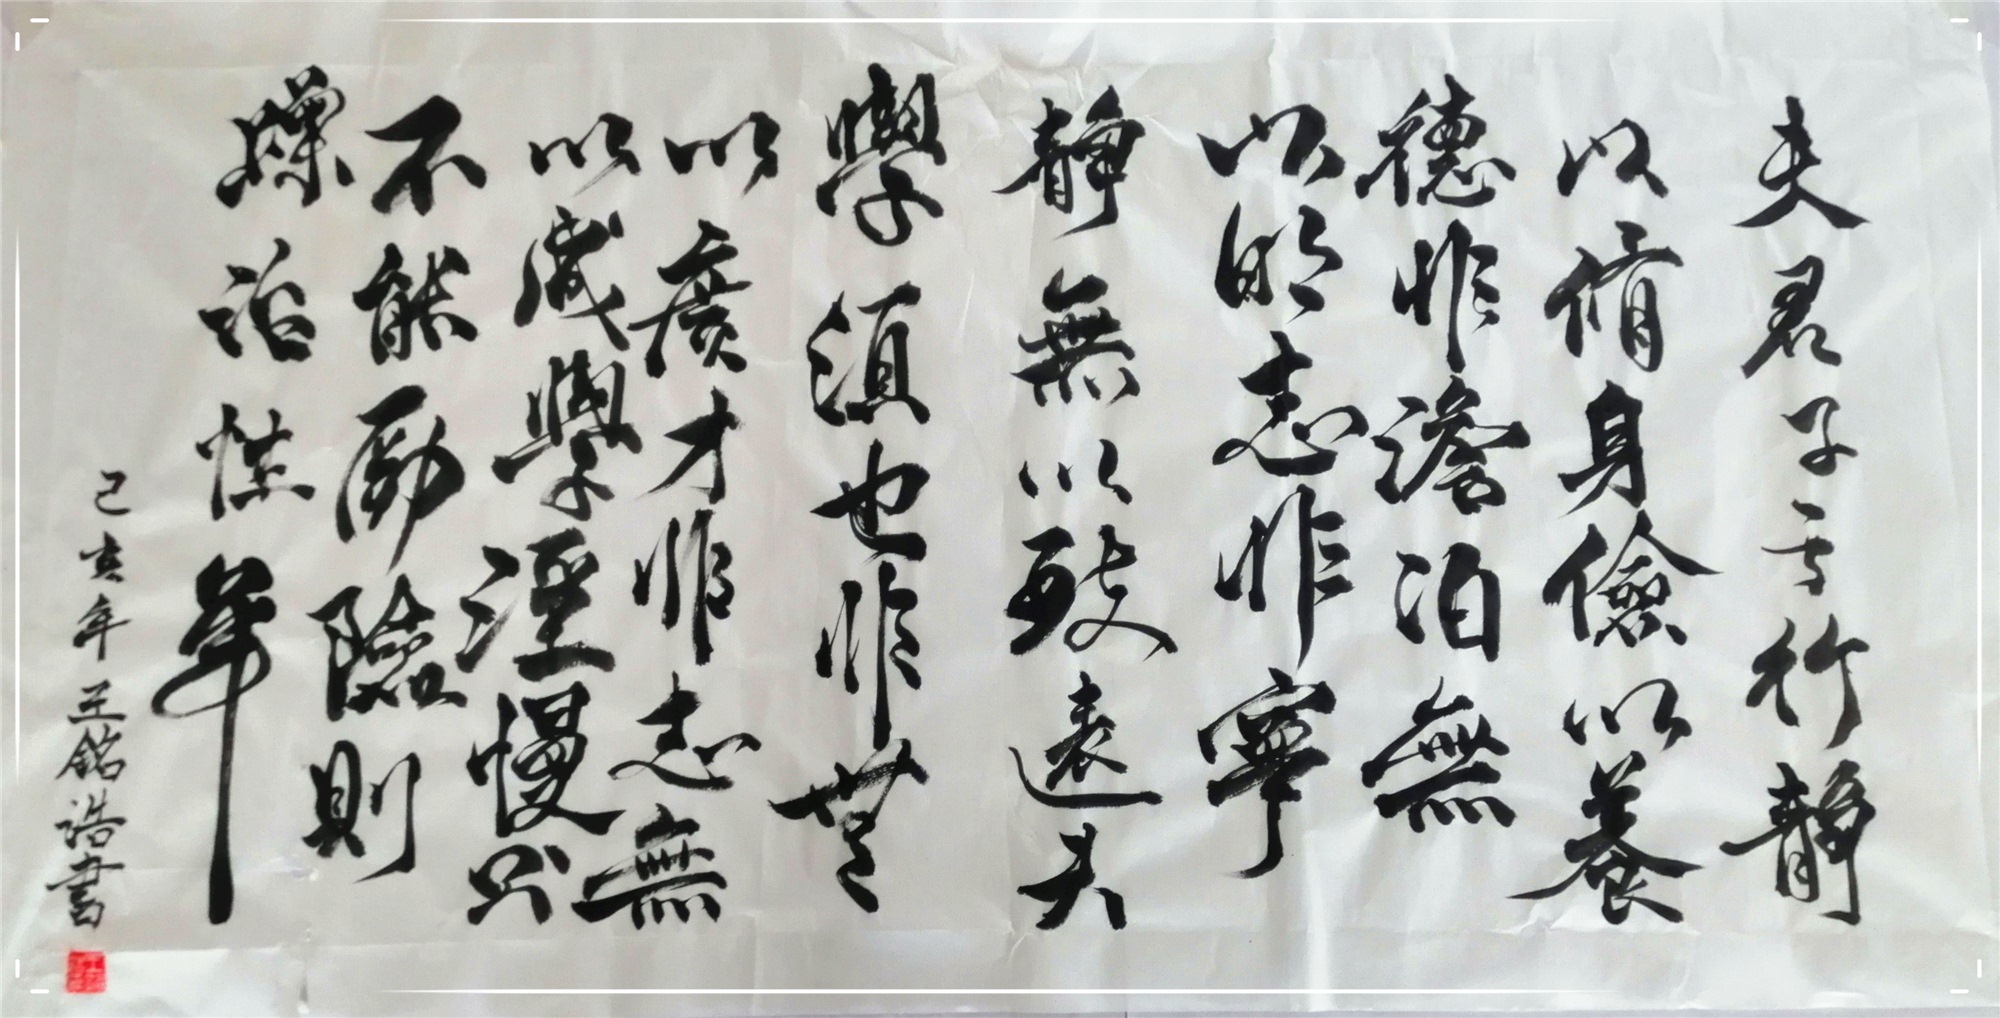 夫君子之行靜
以脩身儉以養
德非澹泊無
以明志非寧
靜無以致遠夫
學須也非無
以廣才非志無
以成學淫慢則
不能勵險則
躁治性年
己亥年王銘浩書